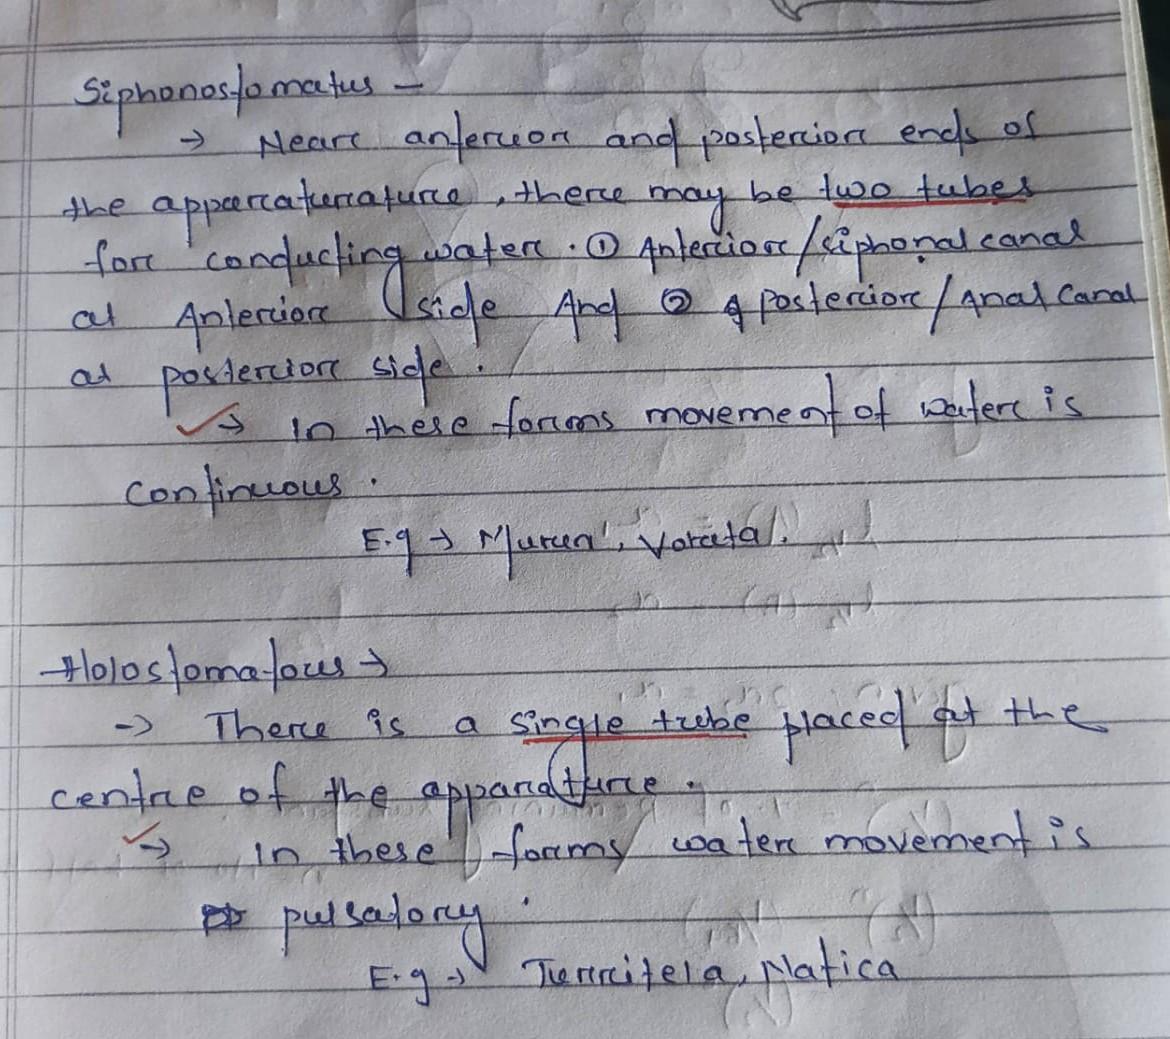 Siphonostomatus -
→ Near anterior and posterior ends of
the apparcaturature, there may be two tubes
for conducting water. ① Anterior/siphonal canal
at Anterior side And ② Posterior/Anal Canal
at posterior side.
→ In these forms movement of water is
continuous.
E.g → Murex, Voluta.
Holostomatous →
→ There is a single tube placed at the
centre of the apparature.
→ In these forms water movement is
pulsatory.
E.g → Turritela, Natica